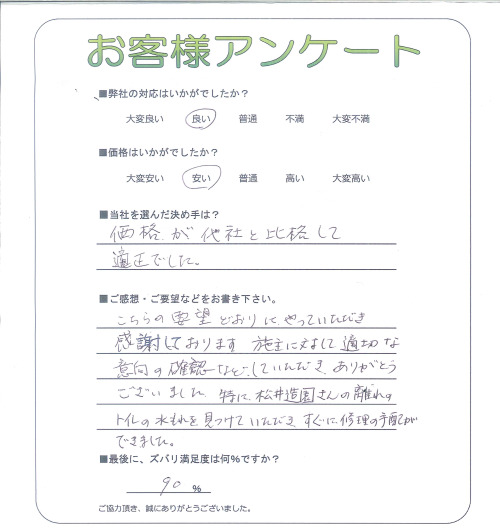 お客様アンケート
■弊社の対応はいかがでしたか？
大変良い 良い 普通 不満 大変不満
■価格はいかがでしたか？
大変安い 安い 普通 高い 大変高い
■当社を選んだ決め手は？
価格が代社と比格して
適正でした。
■ご感想・ご要望などをお書き下さい。
こちらの要望どおりにやっていただき
感謝しております 施主に対して適切な
意向の確認など、していただき、ありがとう
ございました 特に、松井造園さんの離れの
トイレの水もれを見つけていただき すぐに修理の手配が
できました。
■最後に、ズバリ満足度は何％ですか？
90 ％
ご協力頂き、誠にありがとうございました。